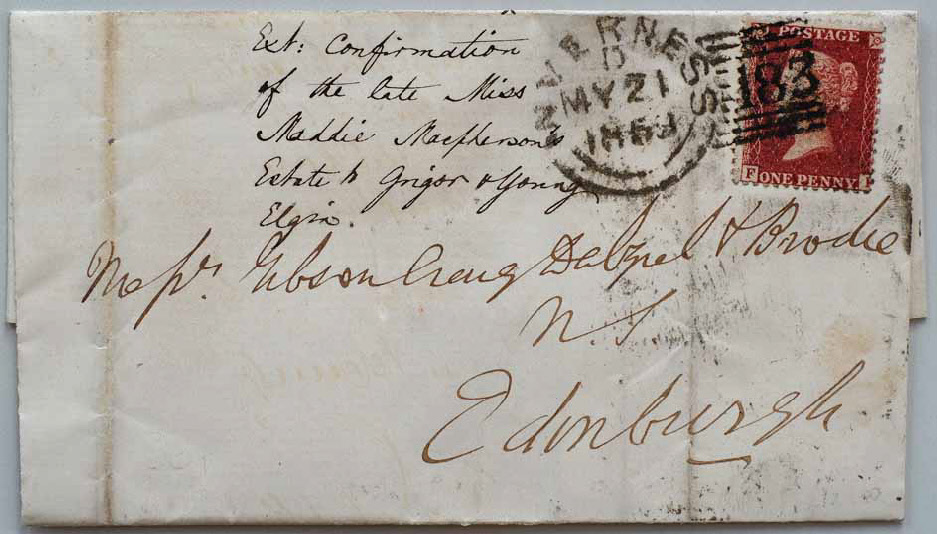 Ext: Confirmation
of the late Miss
Maddie Macpherson's
Estate to Grigor & Young
Elgin.
INVERNESS
D
MY 21
186
183
POSTAGE
F ONE PENNY I
Messrs. Gibson Craig Dalziel & Brodie
W.S.
Edinburgh